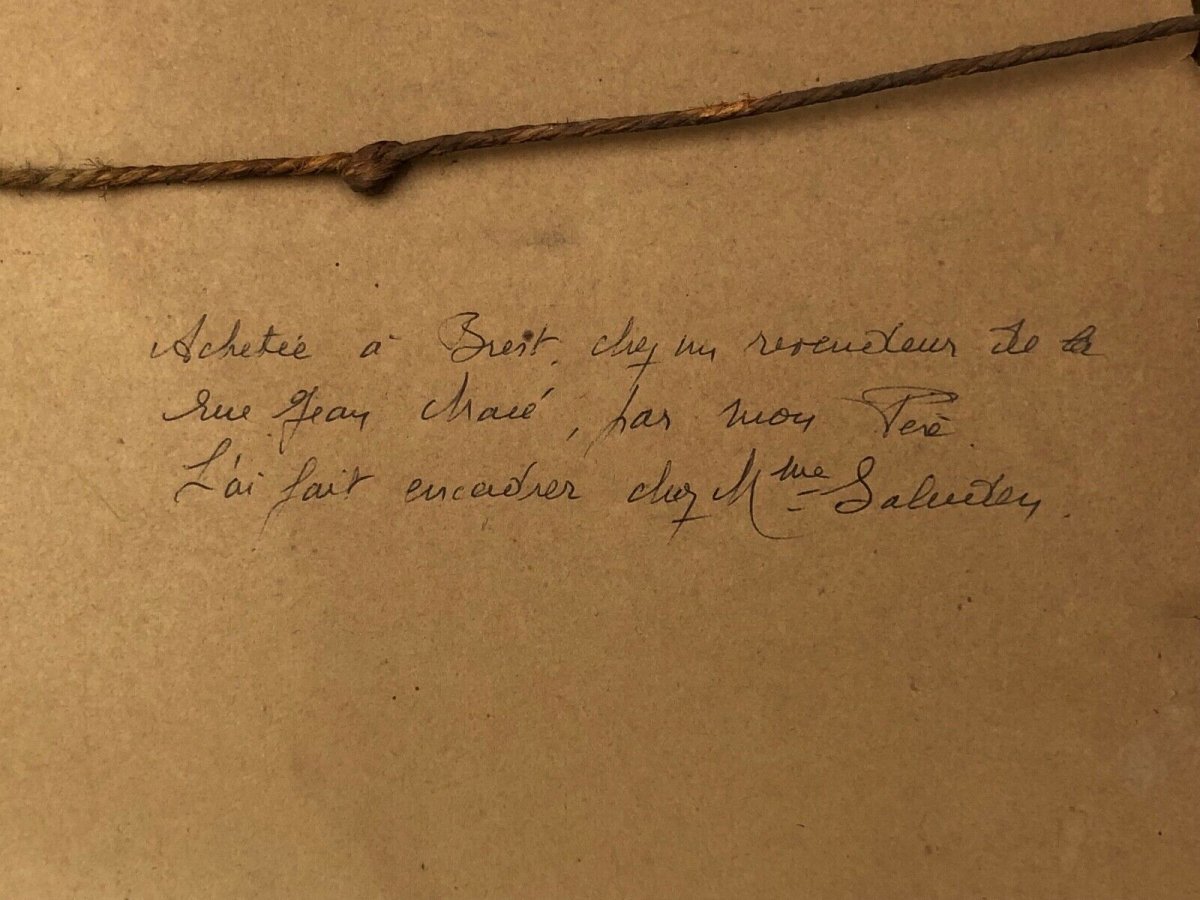 Achetée à Brest, chez un revendeur de la
rue Jean Macé, par mon Père.
L'ai fait encadrer chez Mme Saluden.